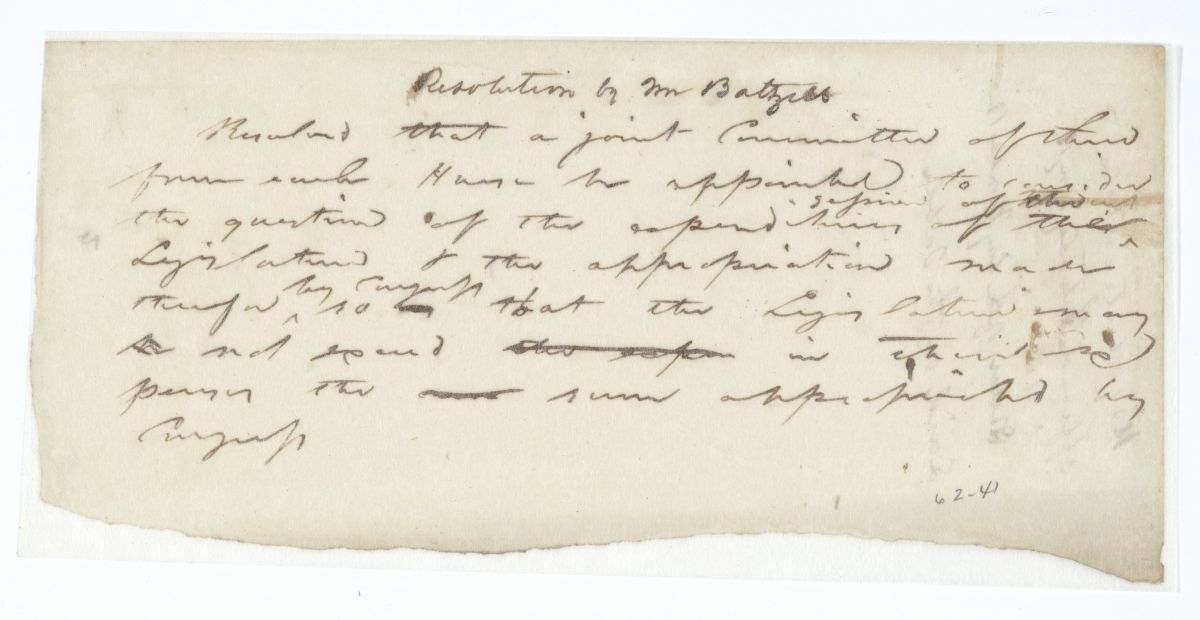 Resolution by Mr Baltzell
Resolved that a joint Committee of three
from each House be appointed to consider
the question of the expenditures of the session of this
Legislature & the appropriation made
therefor by Congress so that the Legislature may
not exceed in their ex
penses the sum appropriated by
Congress
62-41